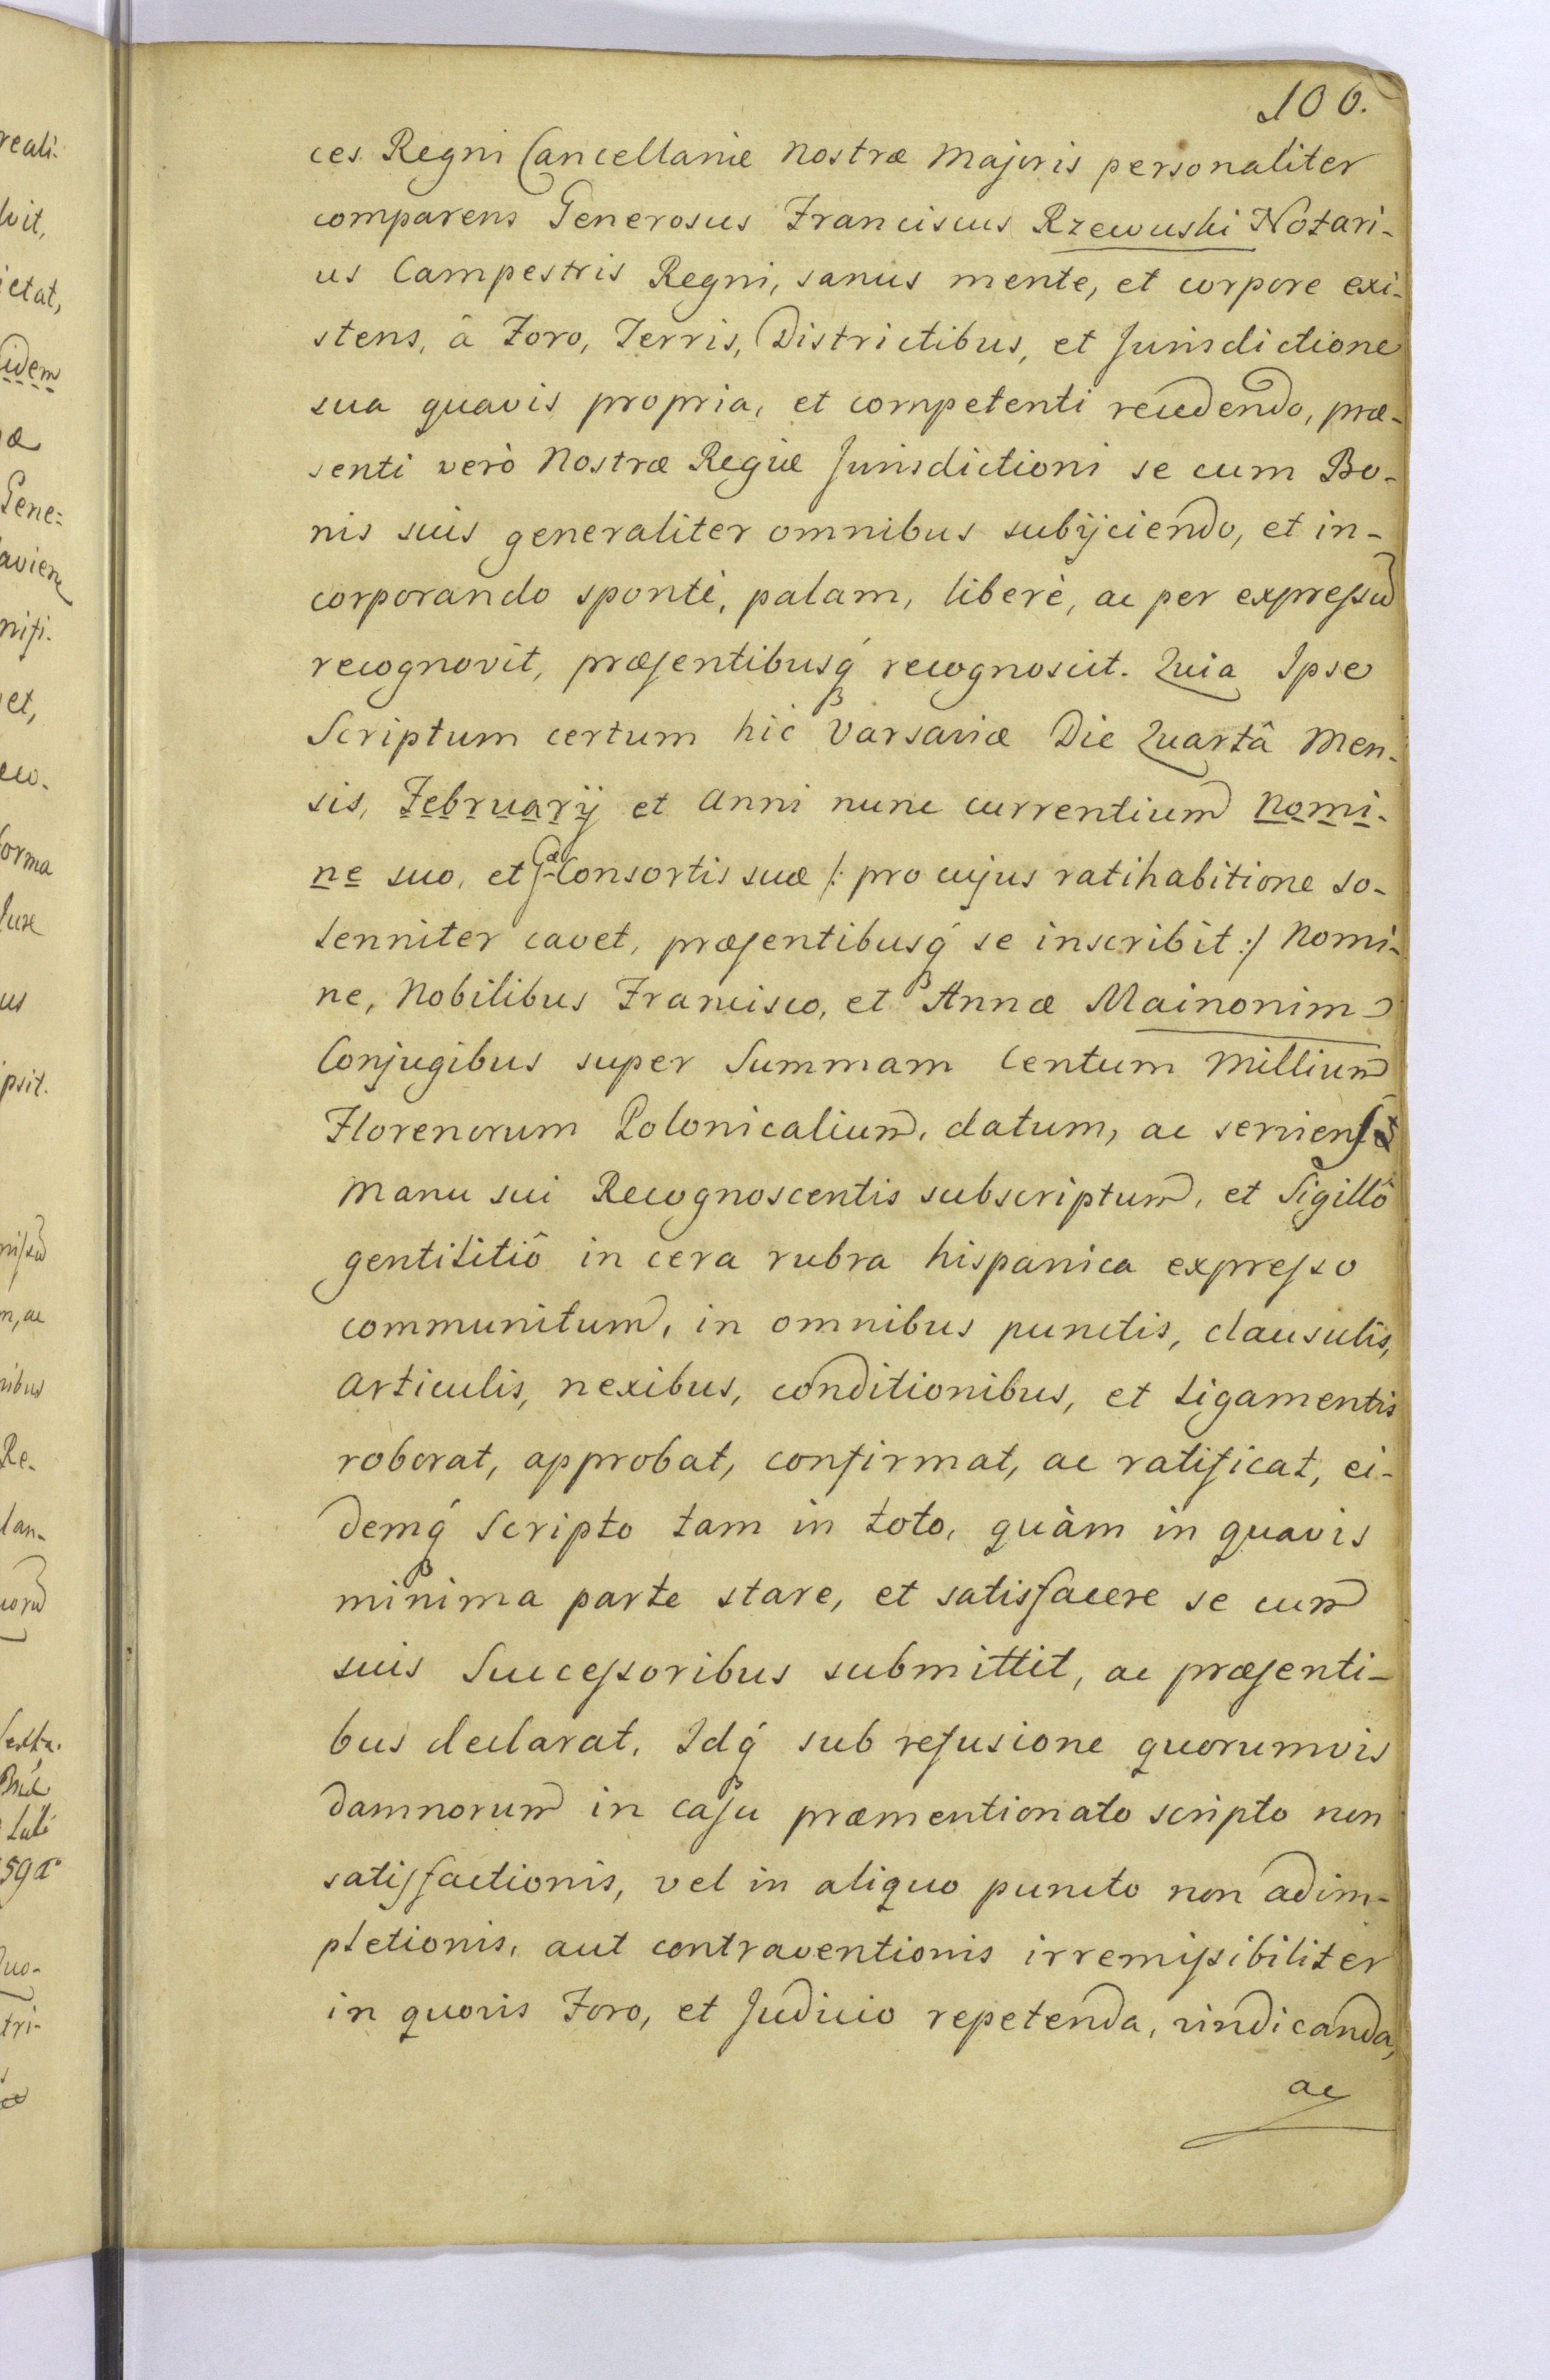 106.
ces Regni Cancellariæ Nostræ Majoris personaliter
comparens Generosus Franciscus Rzewuski Notari-
us Campestris Regni, sanus mente, et corpore exi-
stens, â Foro, Terris, Districtibus, et Jurisdictione
sua quavis propria, et competenti recedendo, præ-
senti verò Nostræ Regiæ Jurisdictioni se cum Bo-
nis suis generaliter omnibus subijciendo, et in-
corporando spontè, palam, liberè, ac per expressũ
recognovit, præsentibusq́ recognoscit. Quia Ipse
Scriptum certum hic Varsaviæ Die Quartâ Men-
sis, Februarij et Anni nunc currentium nomi-
ne suo, et Gæ Consortis suæ /: pro cujus ratihabitione so-
lenniter cavet, præsentibusq́ se inscribit :/ Nomi-
ne, Nobilibus Francisco, et Annæ Mainonim
Conjugibus super Summam Centum Millium
Florenorum Polonicalium, datum, ac serviens
Manu sui Recognoscentis subscriptum, et Sigillô
gentilitiô in cera rubra hispanica expresso
communitum, in omnibus punctis, clausulis,
Articulis, nexibus, conditionibus, et Ligamentis
roborat, approbat, confirmat, ac ratificat, ei-
demq́ Scripto tam in toto, quàm in quavis
minima parte stare, et satisfacere se cum
suis Successoribus submittit, ac præsenti-
bus declarat, Idq́ sub refusione quorumvis
damnorum in casu præmentionato scripto non
satisfactionis, vel in aliquo puncto non adim-
pletionis, aut contraventionis irremissibiliter
in quovis Foro, et Judicio repetenda, vindicanda,
ac